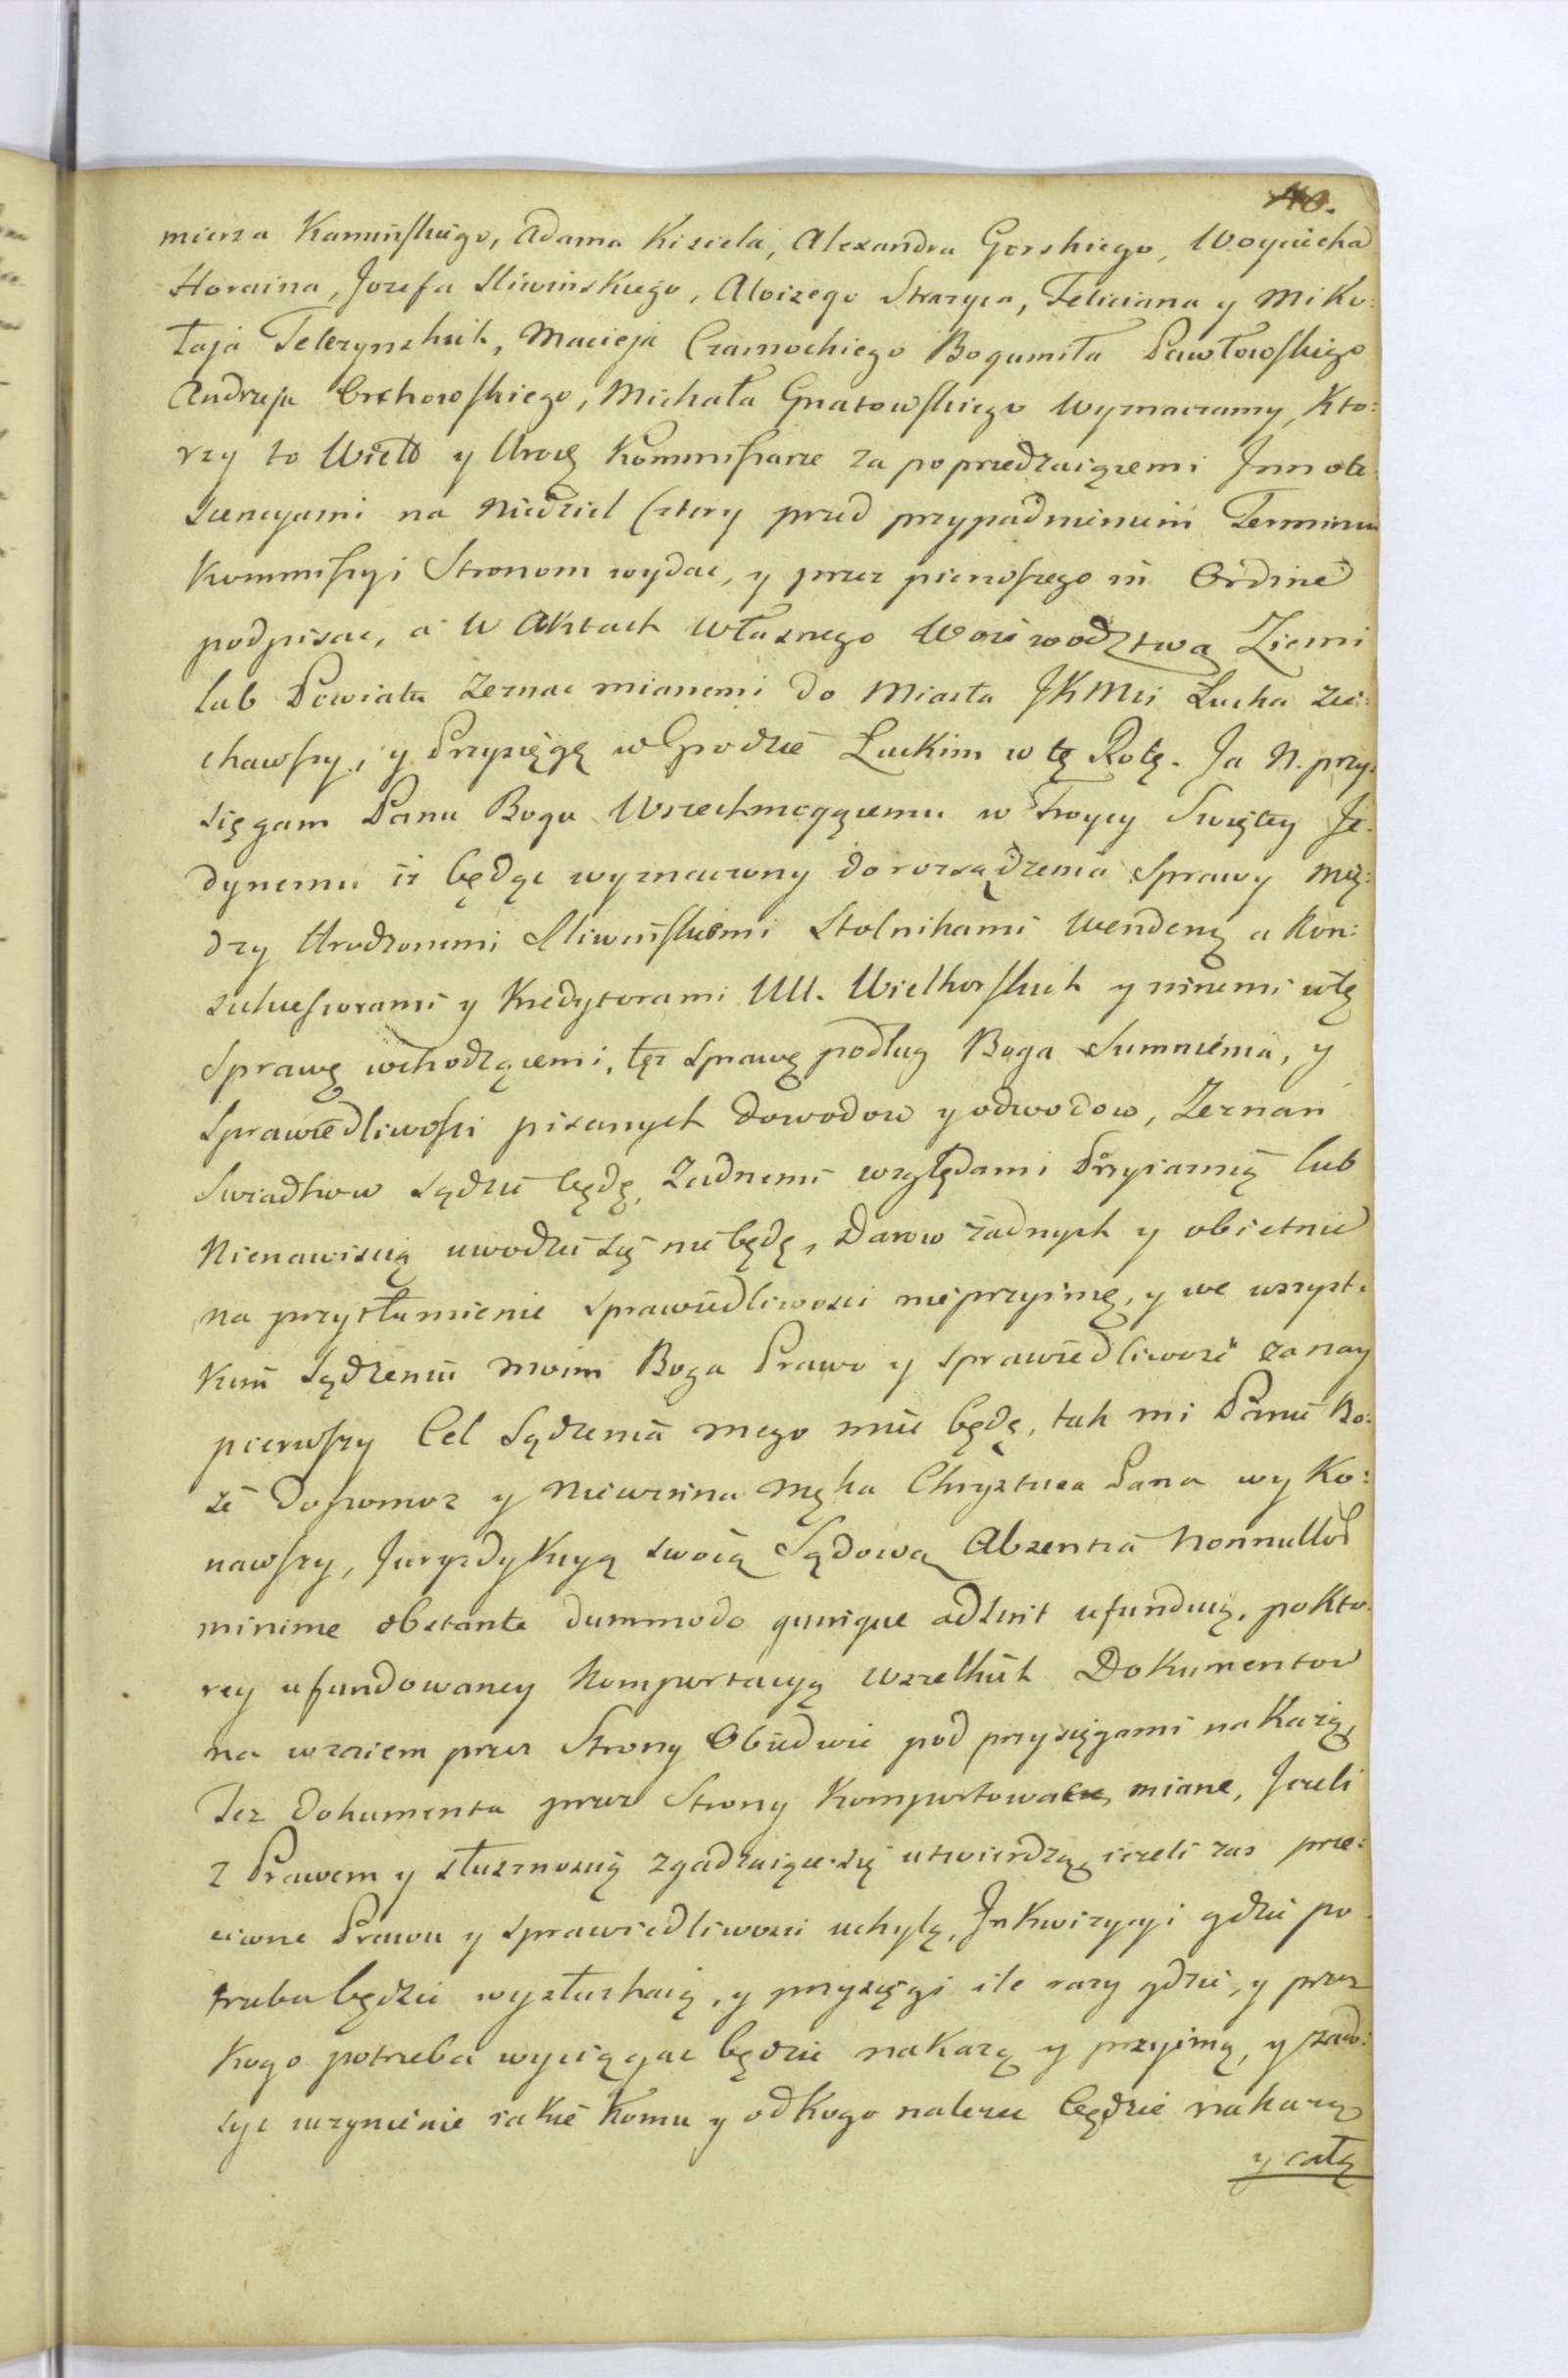 40.
mierza Kamińskiego, Adama Kisiela, Alexandra Gorskiego, Woyciecha
Horaina, Jozefa Sliwinskiego, Aloizego Strazyca, Feliciana y Miko:
łaja Telezynskich, Macieja Czarnockiego Bogumiła Pawłowskiego
Andrzeja Orchowskiego, Michała Gnatowskiego wyznaczamy, Kto:
rzy to Wielo y Urog Kommissarze za poprzedzaiącemi Innote
scencyami na Niedziel Cztery przed przypadnieniem Terminu
Kommissyi Stronom wydac, y przez pierwszego in Ordine
podpisac, a w Aktach własnego Woiewodztwa Ziemi
lub Powiatu zeznac mianemi do Miasta JKMci Łucka zie:
chawszy, y Przysięgę w Grodzie Łuckim w tę Rotę. Ja N. przy:
sięgam Panu Bogu Wszechmogącemu w Troycy Swiętey Je:
dynemu iż będąc wyznaczony do rozsądzenia Sprawy mię:
dzy Urodzonemi Sliwińskiemi Stolnikami Wendeng a Kon:
sukcessorami y Kredytorami UU. Wielhorskich y innemi w tę
Sprawę wchodzącemi, tęż sprawę podług Boga Sumnienia, y
Sprawiedliwosci pisanych dowodow y odwodow, Zeznan
Swiadkow sądzić będę, Zadnemi względami Przyiaznią lub
Nienawiscią uwodzić się nie będę, Darow żadnych y obietnic
na przytłumienie sprawiedliwosci nieprzyimę, y we wszyst:
kim sądzeniu moim Boga Prawo y sprawiedliwość za nay
pierwszy Cel sądzenia mego mieć będę, tak mi Panie Bo:
że dopomoz y Niewinna męka Chrystusa Pana wyko:
nawszy, Juryzdykcyą swoią Sądową Absentia nonnullor
minime obstante dummodo quinque adsint ufunduią, po kto:
rey ufundowaney Komportacyą wszelkich Dokumentow
na wzaiem przez Strony Obiedwie pod przysięgami nakażą,
Też dokumenta przez Strony Komportowane miane, Jezeli
z Prawem y słusznoscią zgadzaiące się utwierdzą, iezeli zas prze:
ciwne Prawu y sprawiedliwosci uchylą, Inkwizycyi gdzie po
trzeba będzie wysłuchaią, y przysięgi ile razy gdzie, y przez
kogo potrzeba wyciągac będzie nakażą y przyimą, y zado:
syc uczynienie iakie komu y od kogo nalezec będzie nakażą
y całą